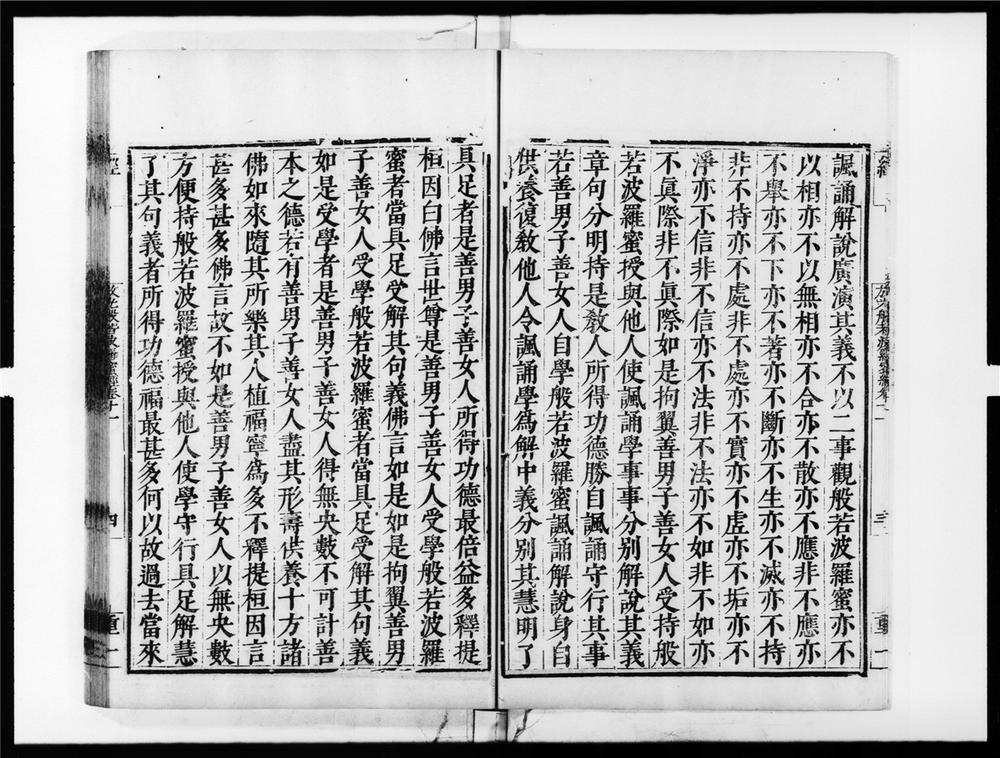 諷誦解說廣演其義不以二事觀般若波羅蜜亦不
以相亦不以無相亦不合亦不散亦不應非不應亦
不舉亦不下亦不著亦不斷亦不生亦不滅亦不持
非不持亦不處非不處亦不實亦不虛亦不垢亦不
淨亦不信非不信亦不法非不法亦不如非不如亦
不眞際非不眞際如是拘翼善男子善女人受持般
若波羅蜜授與他人使諷誦學事事分別解說其義
章句分明持是敎人所得功德勝自諷誦守行其事
若善男子善女人自學般若波羅蜜諷誦解說身自
供養復敎他人令諷誦學爲解中義分別其慧明了
具足者是善男子善女人所得功德最倍益多釋提
桓因白佛言世尊是善男子善女人受學般若波羅
蜜者當具足受解其句義佛言如是如是拘翼善男
子善女人受學般若波羅蜜者當具足受解其句義
如是受學者是善男子善女人得無央數不可計善
本之德若有善男子善女人盡其形壽供養十方諸
佛如來隨其所樂其人植福寧爲多不釋提桓因言
甚多甚多佛言故不如是善男子善女人以無央數
方便持般若波羅蜜授與他人使學守行具足解慧
了其句義者所得功德福最甚多何以故過去當來
四